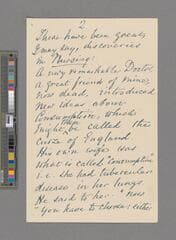 2
There have been great,
I may say, discoveries
in Nursing:
A very remarkable Doctor,
a great friend of mine,
now dead, introduced
new ideas about
Consumption, which
might then be called the
curse of England
His own wife was
what is called "consumptive"
i.e. she had tubercular
disease in her lungs
He said to her: "now
"You have to choose: either